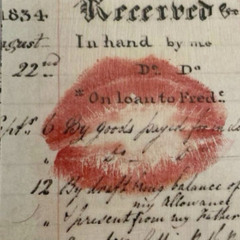 1834. Received &c
August In hand by me
22nd Do. Do
"On loan to Fredk.
Sept. 6 By goods
12 By draft being balance of
my allowance
" present from my father